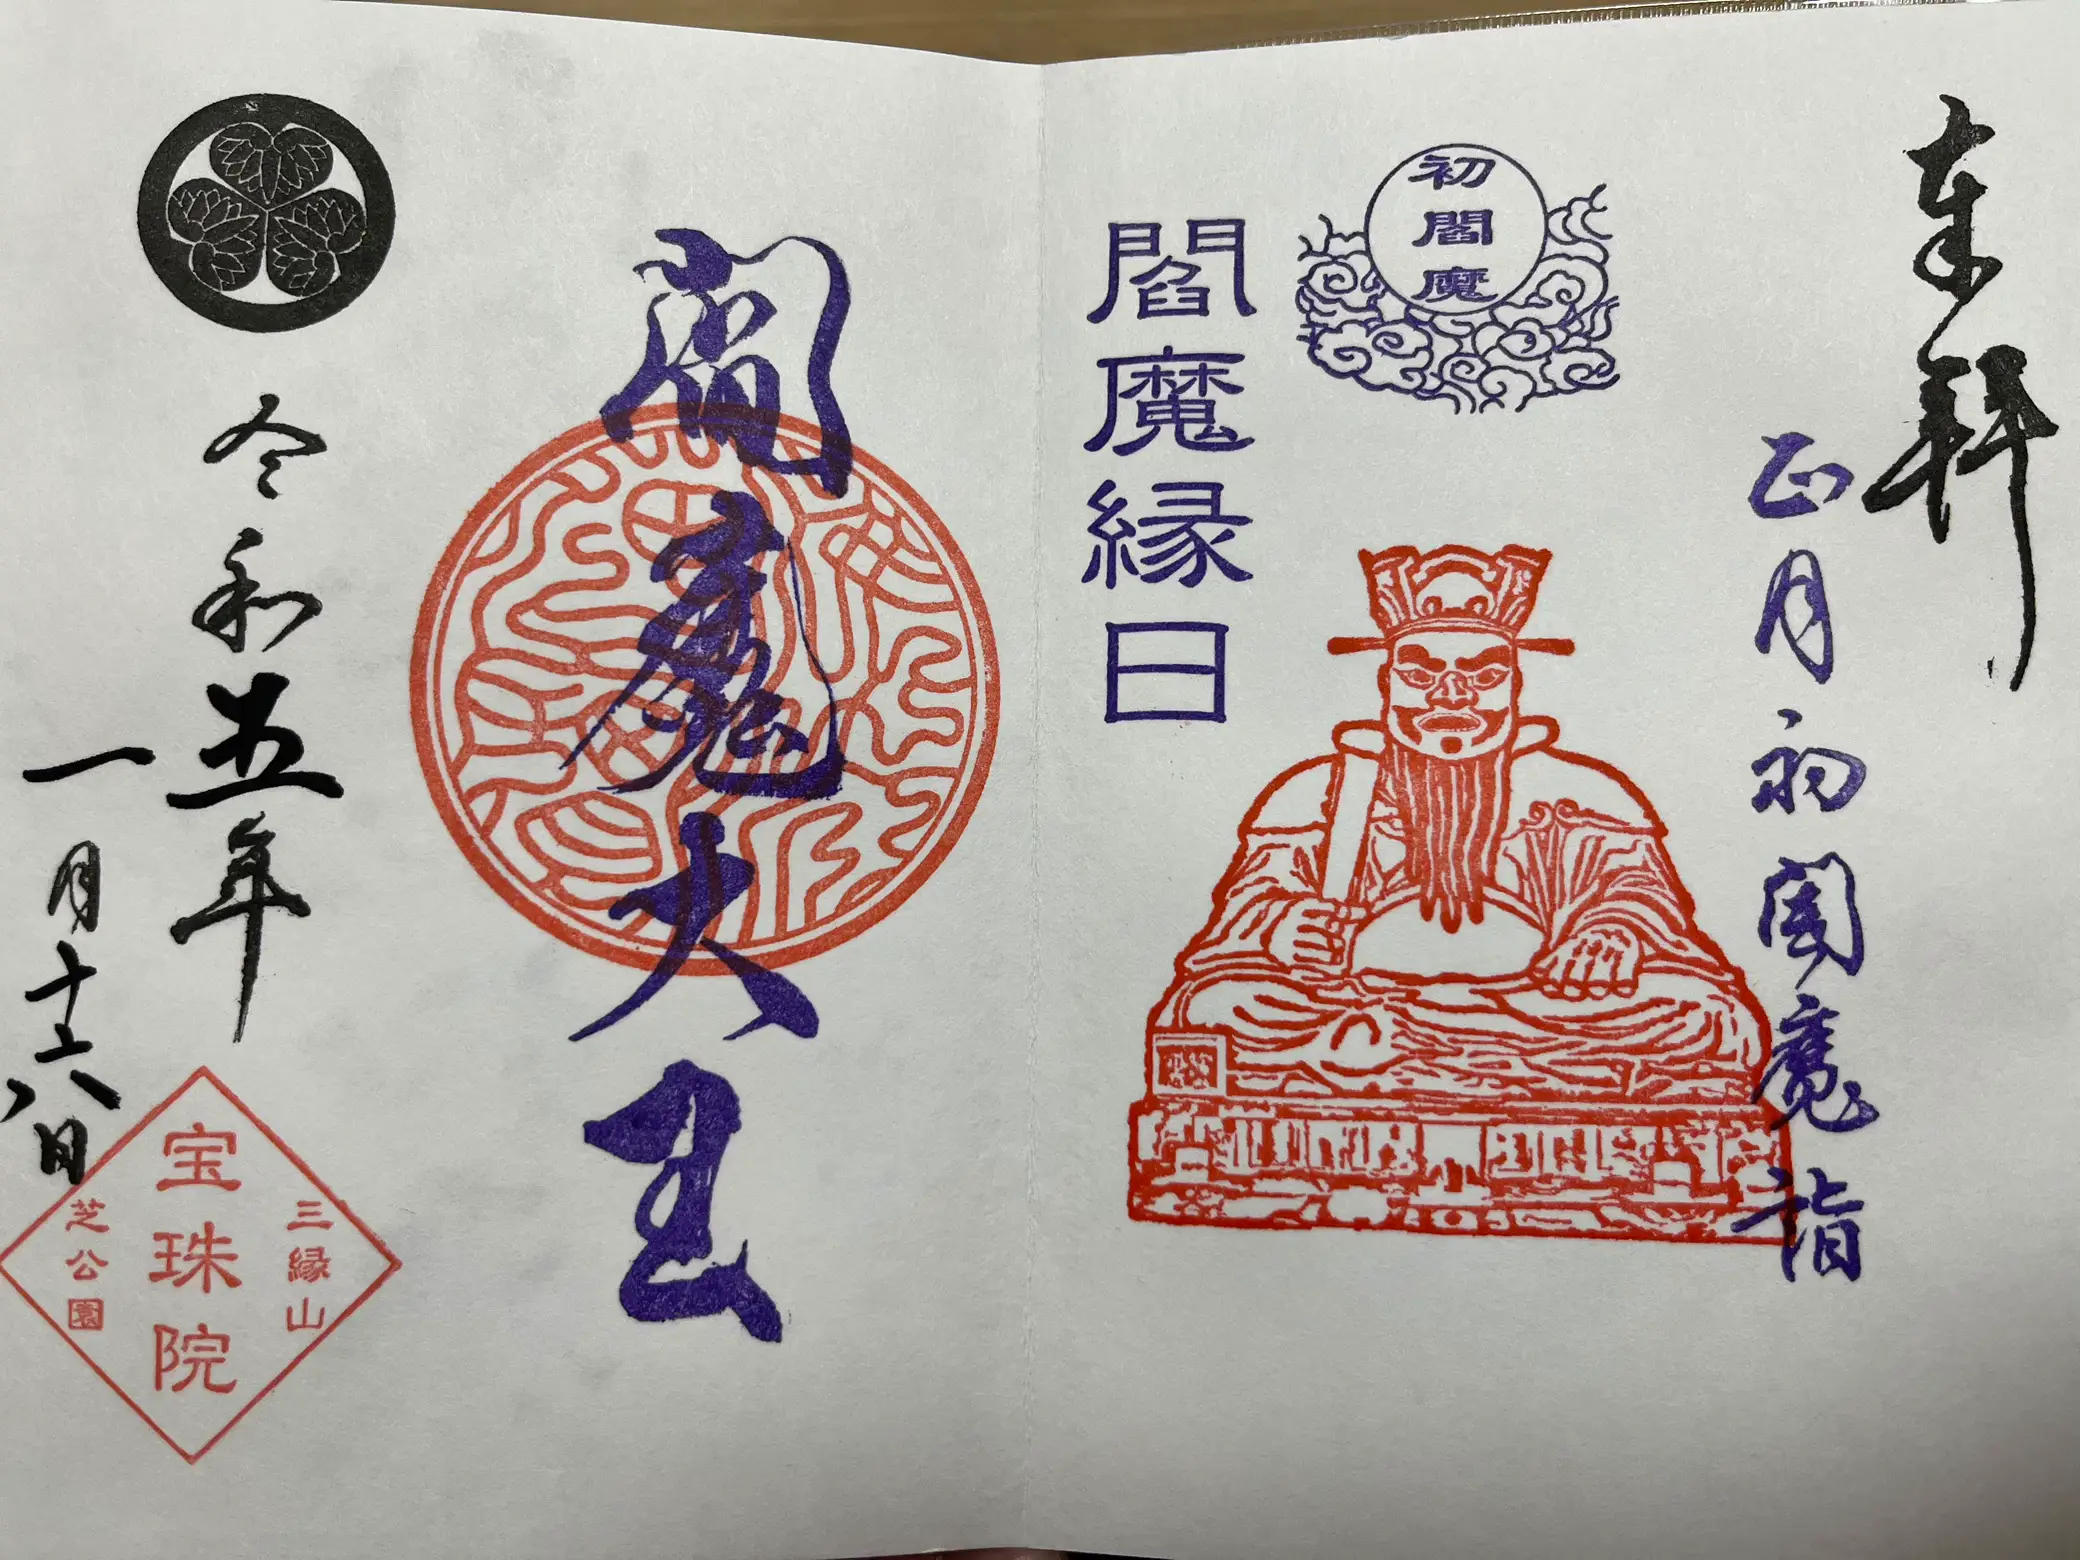 奉拝
正月初閻魔詣
初閻魔
閻魔縁日
閻魔大王
令和五年
一月十六日
三縁山
宝珠院
芝公園